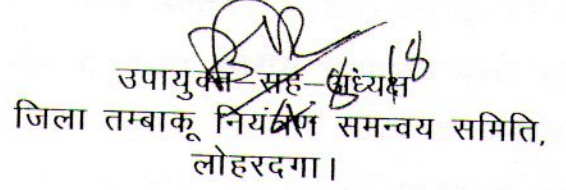 उपायुक्त–सह–अध्यक्ष
जिला तम्बाकू नियंत्रण समन्वय समिति,
लोहरदगा।